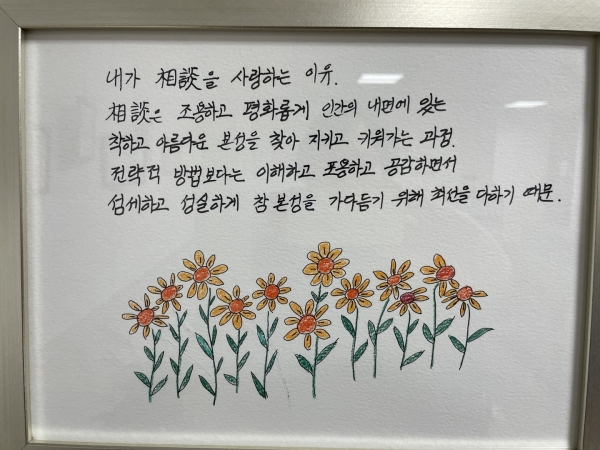 내가 相談을 사랑하는 이유.
相談은 조용하고 평화롭게 인간의 내면에 있는
착하고 아름다운 본성을 찾아 지키고 키워가는 과정.
전략적 방법보다는 이해하고 포옹하고 공감하면서
섬세하고 성실하게 참 본성을 가다듬기 위해 최선을 다하기 때문.